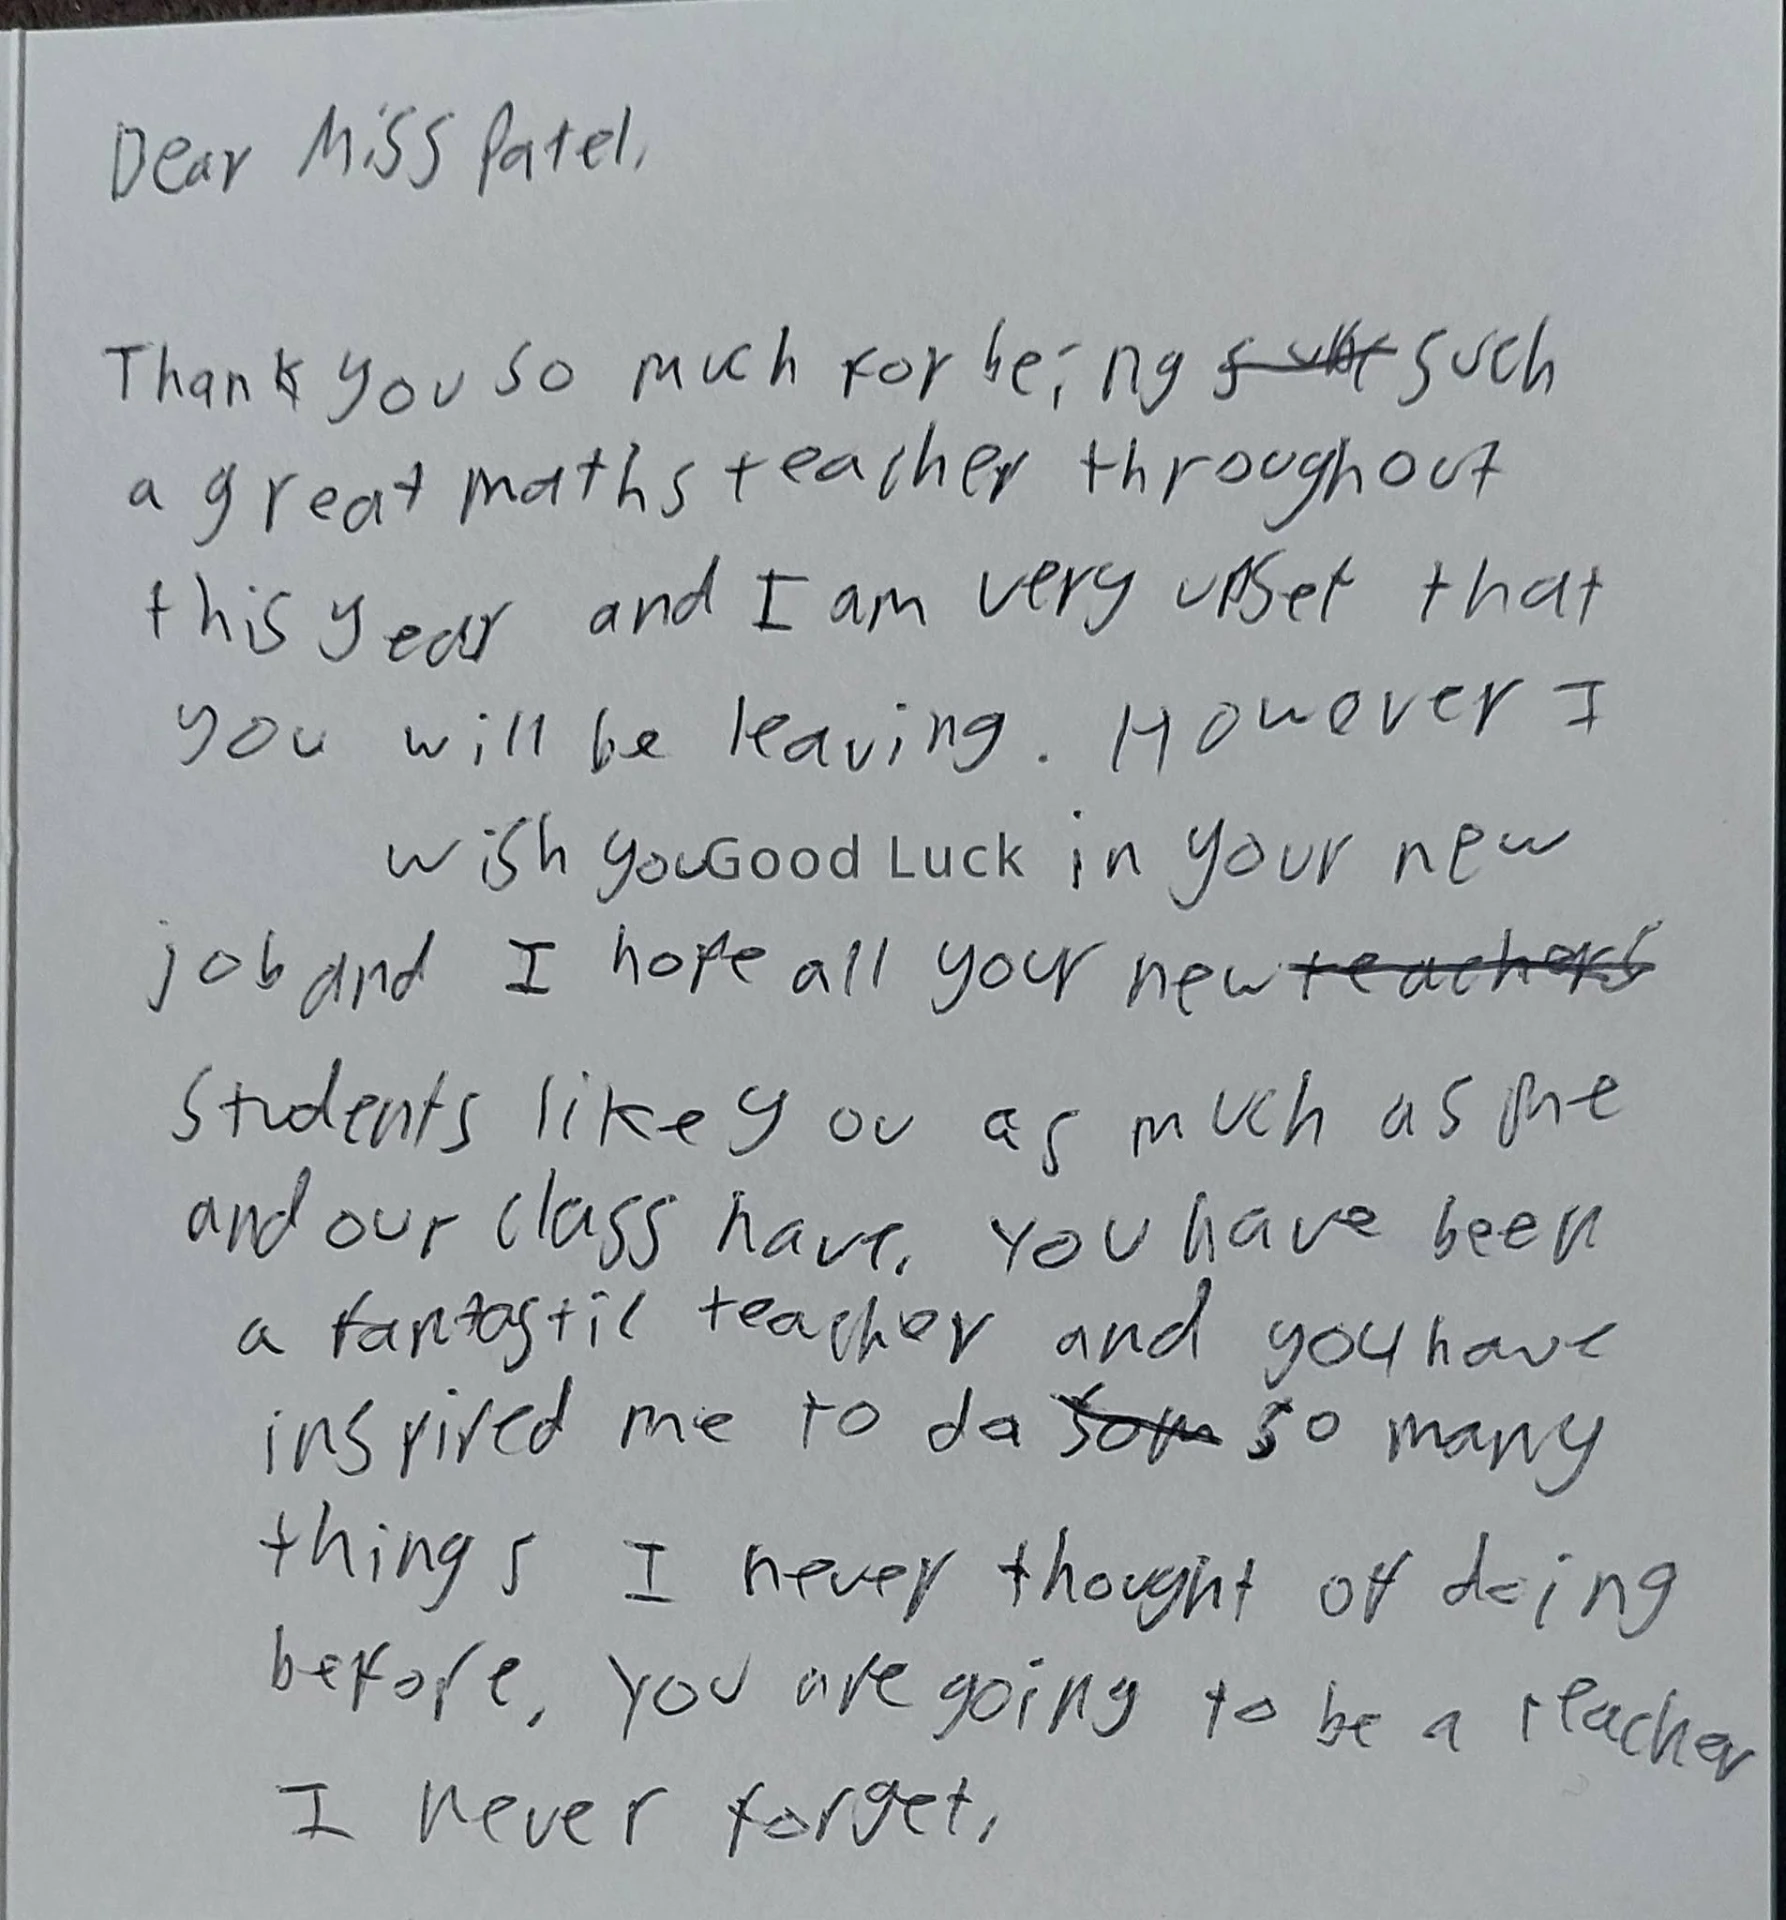 Dear Miss Patel,
Thank you so much for being such
a great maths teacher throughout
this year and I am very upset that
you will be leaving. However I
wish you Good Luck in your new
job and I hope all your new teachers
students like you as much as me
and our class have. You have been
a fantastic teacher and you have
inspired me to do som so many
things I never thought of doing
before, you are going to be a teacher
I never forget.